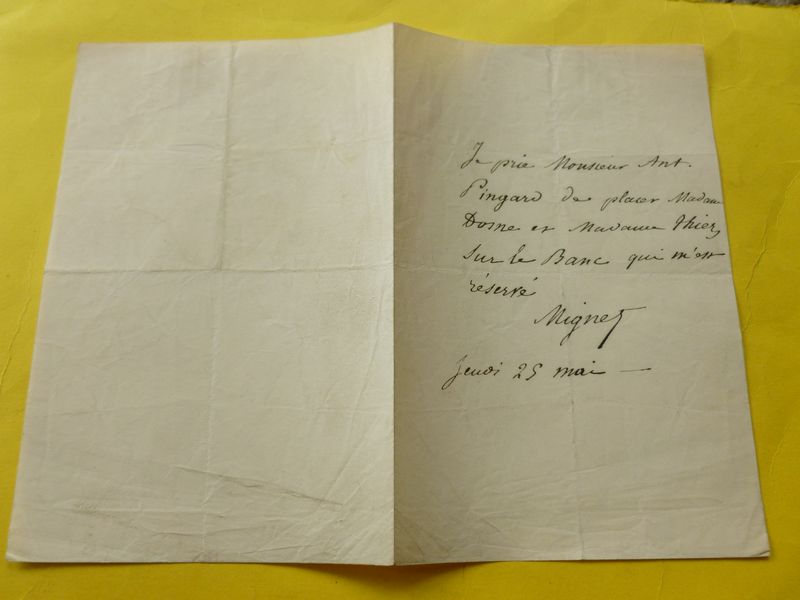 Je prie Monsieur Ant.
Pingard de placer Madame
Dosne et Madame Thiers
sur le Banc qui m'est
réservé
Mignet
Jeudi 25 mai —